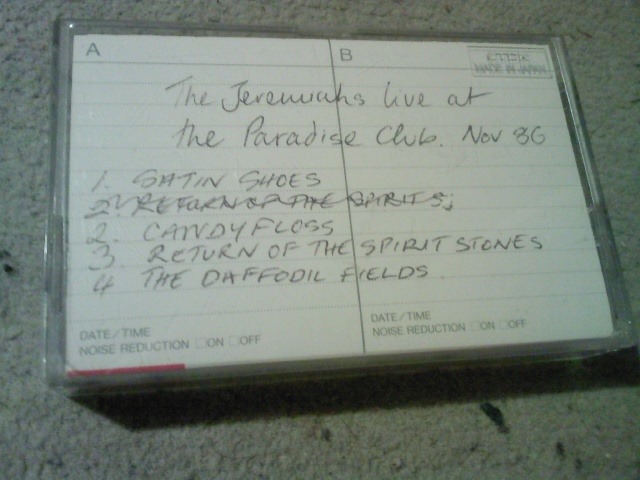 A
B
MADE IN JAPAN
The Jeremiahs live at
the Paradise Club. Nov 86
1. SATIN SHOES
2. RETURN OF THE SPIRITS;
2. CANDYFLOSS
3. RETURN OF THE SPIRIT STONES
4 THE DAFFODIL FIELDS
DATE/TIME
NOISE REDUCTION □ON □OFF
DATE/TIME
NOISE REDUCTION □ON □OFF